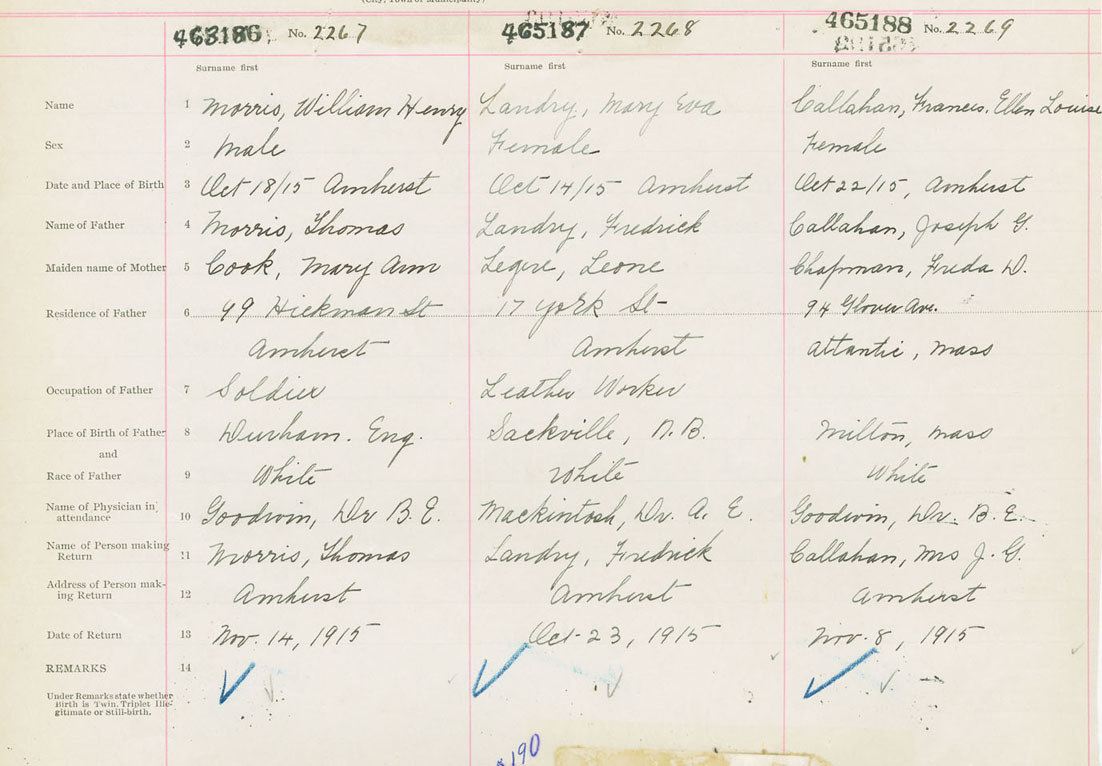 (City, Town or Municipality)
463186 No. 2267 465187 No. 2268 465188 No. 2269
Surname first Surname first Surname first
Name 1 Morris, William Henry Landry, Mary Eva Callahan, Francis. Ellen Louise
Sex 2 Male Female Female
Date and Place of Birth 3 Oct 18/15 Amherst Oct 14/15 Amherst Oct 22/15, Amherst
Name of Father 4 Morris, Thomas Landry, Fredrick Callahan, Joseph G.
Maiden name of Mother 5 Cook, Mary Ann Legere, Leone Chapman, Freda D.
Residence of Father 6 99 Hickman St 17 York St 94 Glover Ave.
Amherst Amherst Atlantic, Mass
Occupation of Father 7 Soldier Leather Worker
Place of Birth of Father 8 Durham. Eng. Sackville, N.B. Milton, Mass
and
Race of Father 9 White White White
Name of Physician in attendance 10 Goodwin, Dr B.E. Mackintosh, Dr. A. E. Goodwin, Dr. B.E.
Name of Person making Return 11 Morris, Thomas Landry, Fredrick Callahan, Mrs J. G.
Address of Person making Return 12 Amherst Amherst Amherst
Date of Return 13 Nov. 14, 1915 Oct-23, 1915 Nov. 8, 1915
REMARKS 14
Under Remarks state whether
Birth is Twin, Triplet Ille-
gitimate or Still-birth.
190